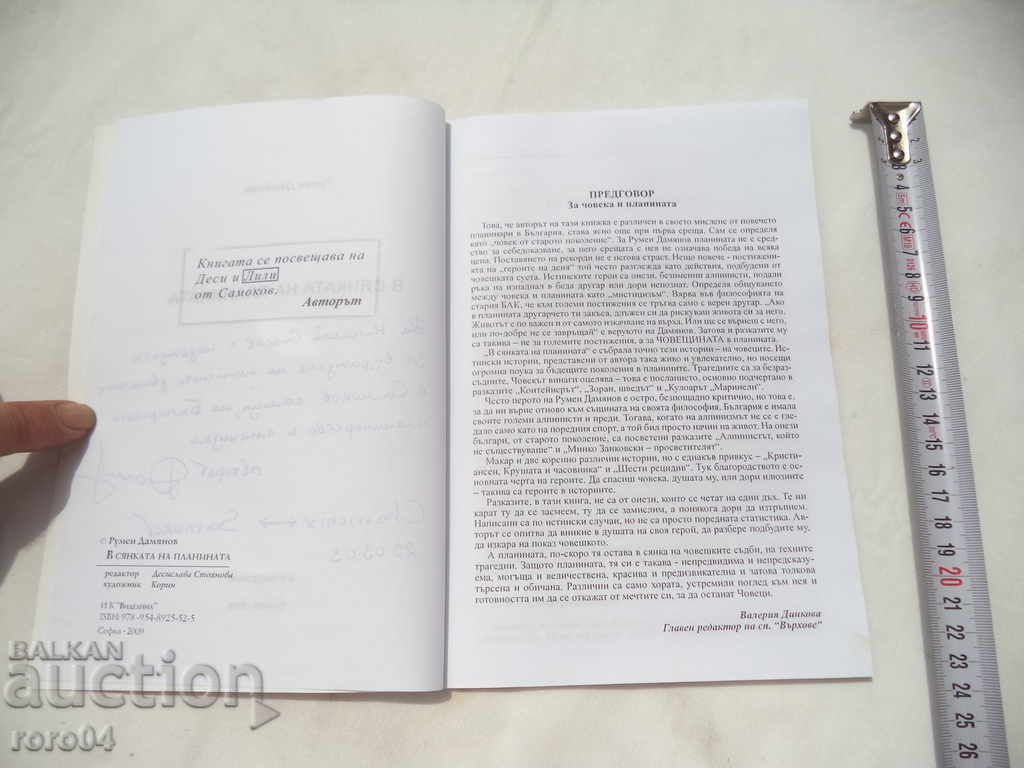 Книгата се посвещава на
Деси и Лили
от Самоков.
Авторът
© Румен Дамянов
В СЯНКАТА НА ПЛАНИНАТА
редактор Десислава Стоянова
художник Корин
ИК "Видезник"
ISBN: 978-954-8925-52-5
София - 2009
ПРЕДГОВОР
За човека и планината
Това, че авторът на тази книжка е различен в своето мислене от повечето
планинари в България, става ясно още при първа среща. Сам се определя
като „човек от старото поколение“. За Румен Дамянов планината не е сред-
ство за себедоказване, за него срещата с нея не означава победа на всяка
цена. Поставянето на рекорди не е негова страст. Нещо повече - постижени-
ята на „героите на деня“ той често разглежда като действия, подбудени от
човешката суета. Истинските герои са онези, безименни алпинисти, подали
ръка на изпаднал в беда другар или дори непознат. Определя общуването
между човека и планината като „мистицизъм“. Вярва във философията на
стария БАК, че към големи постижения се тръгва само с верен другар. „Ако
в планината другарчето ти закъса, длъжен си да рискуваш живота си за него.
Животът е по важен и от самото изкачване на върха. Или ще се върнеш с него,
или по-добре не се завръщай“ е веруюто на Дамянов. Затова и разказите му
са такива – не за големите постижения, а за ЧОВЕЩИНАТА в планината.
„В сянката на планината“ е събрала точно тези истории – на човеците. Ис-
тински истории, представени от автора така живо и увлекателно, но носещи
огромна поука за бъдещите поколения в планината. Трагедиите са за безраз-
съдните, Човекът винаги оцелява – това е посланието, основно подчертано в
разказите „Контейнерът“, „Зоран, шведът“ и „Кулоарът „Маринели“.
Често перото на Румен Дамянов е остро, безпощадно критично, но това е,
за да ни върне отново към същината на своята философия. България е имала
своите големи алпинисти и преди. Тогава, когато на алпинизмът не се е гле-
дало само като на пореден спорт, а той бил просто начин на живот. На онези
българи, от старото поколение, са посветени разказите „Алпинистът, който
не съществуваше“ и „Минко Занковски – просветителят“.
Макар и две коренно различни истории, но с еднакъв привкус – „Кристи-
ансен, Крушата и часовника“ и „Шести рецидив“. Тук благородството е ос-
новната черта на героите. Да спасиш човека, душата му, или дори илюзиите
– такива са героите в историите.
Разказите, в тази книга, не са от онези, които се четат на един дъх. Те ни
карат ту да се засмеем, ту да се замислим, а понякога дори да изтръпнем.
Написани са по истински случаи, но не са просто поредната статистика. Ав-
торът се опитва да вникне в душата на своя герой, да разбере подбудите му,
да изкара на показ човешкото.
А планината, по-скоро тя остава в сянка на човешките съдби, на техните
трагедии. Защото планината, тя си е такава - непредвидима и непредсказу-
ема, могъща и величествена, красива и предизвикателна и затова толкова
търсена и обичана. Различни са само хората, устремили поглед към нея и
готовността им да се откажат от мечтите си, за да останат Човеци.
Валерия Динкова
Главен редактор на сп. “Върхове”
BALKAN
auction
roro04